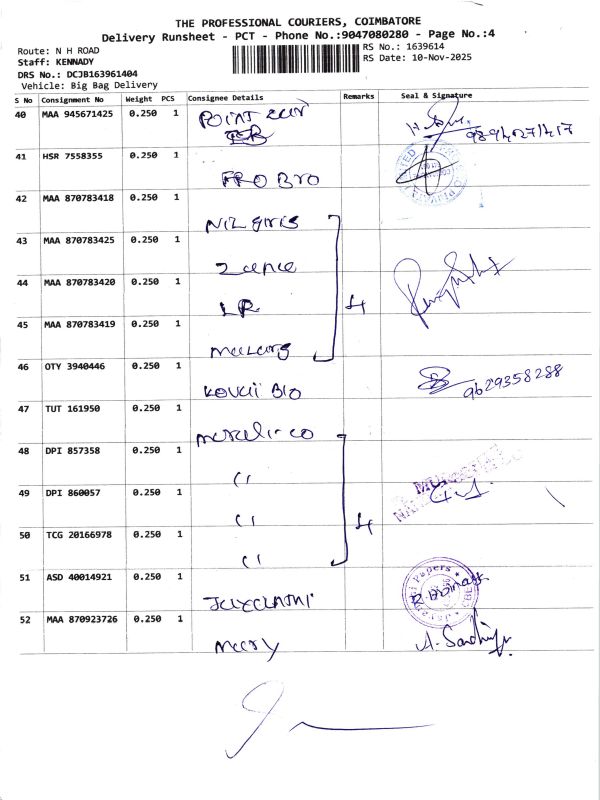 THE PROFESSIONAL COURIERS, COIMBATORE
Delivery Runsheet - PCT - Phone No.:9047080280 - Page No.:4
Route: N H ROAD
RS No.: 1639614
Staff: KENNADY
RS Date: 10-Nov-2025
DRS No.: DCJB163961404
Vehicle: Big Bag Delivery
S No Consignment No Weight PCS Consignee Details Remarks Seal & Signature
40 MAA 945671425 0.250 1 POINT
41 HSR 7558355 0.250 1 PRO BIO
42 MAA 870783418 0.250 1 NILGIRIS
43 MAA 870783425 0.250 1
44 MAA 870783420 0.250 1 LR 4
45 MAA 870783419 0.250 1
46 OTY 3940446 0.250 1 KOVAI BIO 9629358288
47 TUT 161950 0.250 1
48 DPI 857358 0.250 1 ( (
49 DPI 860057 0.250 1 ( ( 4
50 TCG 20166978 0.250 1 ( (
51 ASD 40014921 0.250 1 Papers
52 MAA 870923726 0.250 1